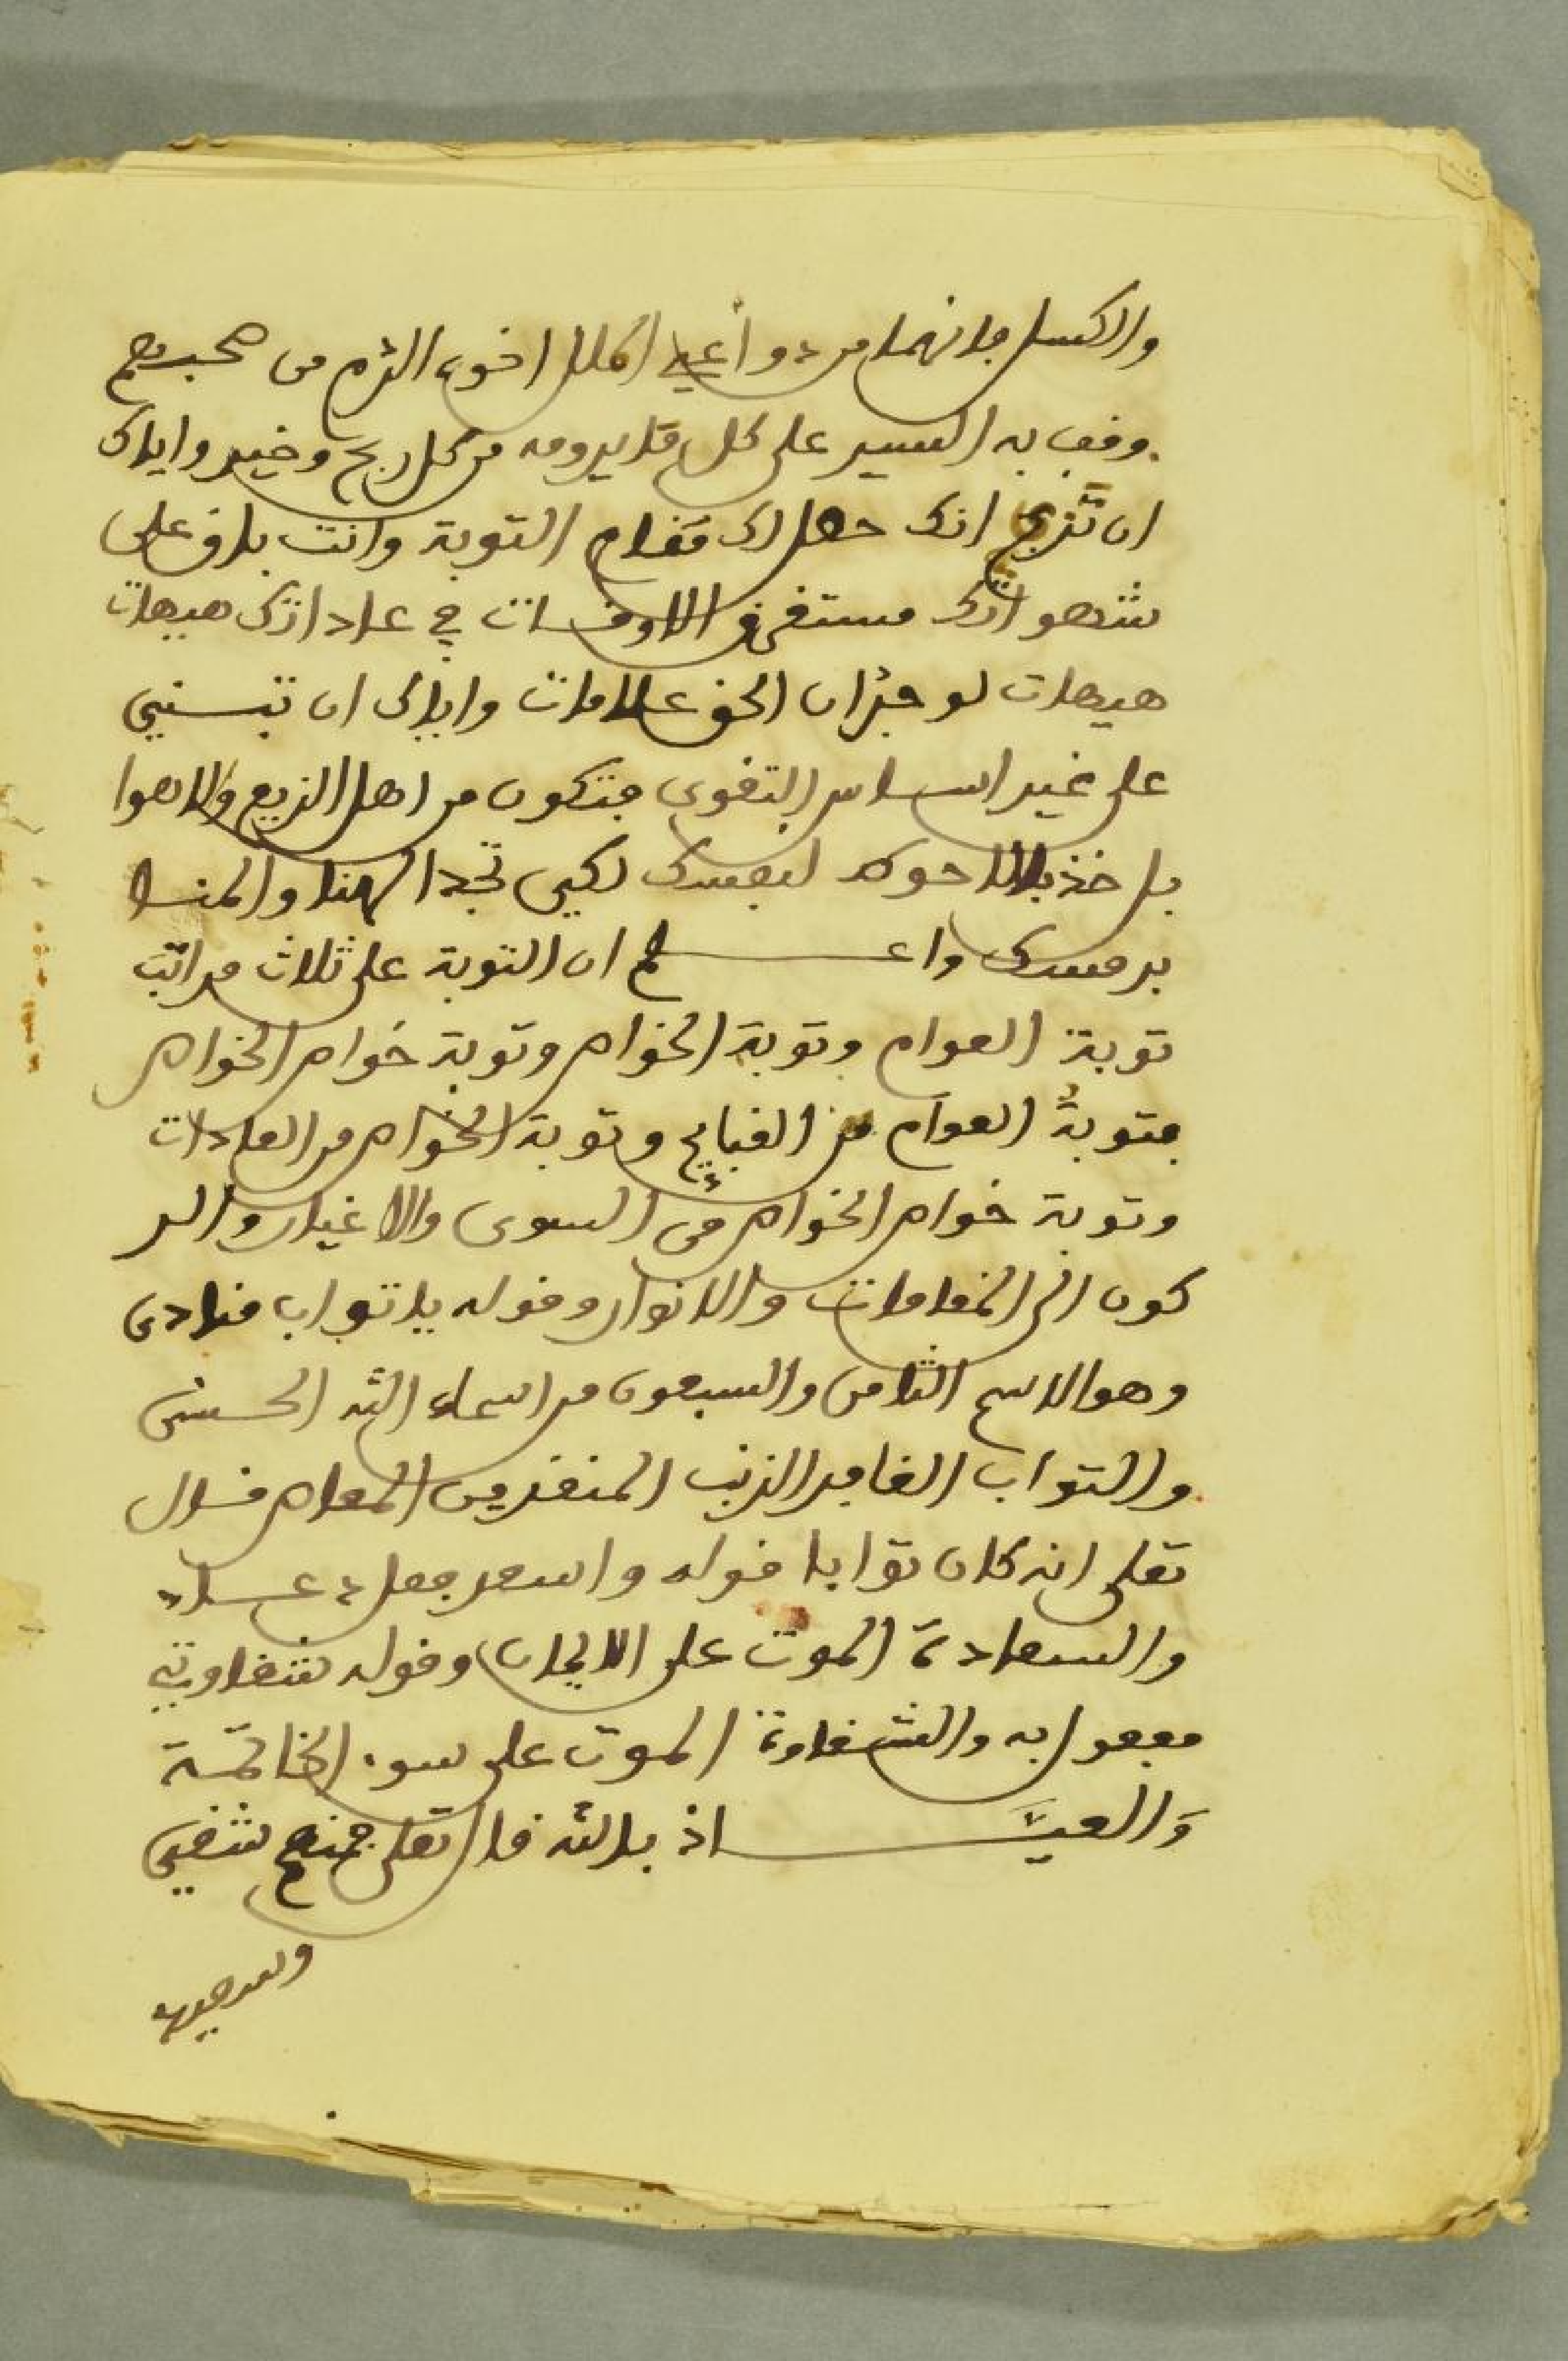 والكسل فانهما من دواعي الملل اخوى الزم من صحبهم
وقف به السير على كل ما يرومه من كل ربح وخير واياك
ان تزعم انك حصل لك مقام التوبة وانت باق على
شهواتك مستغرق الاوقات في عاداتك هيهات
هيهات لوجدان الحق علامات واياك ان تبني
على غير اساس التقوى فتكون من اهل الزيغ والاهوا
بل خذ بالاحوط لنفسك لكي تجد الهنا والمنا
برمسك واعلم ان التوبة على ثلاث مراتب
توبة العوام وتوبة الخواص وتوبة خواص الخواص
فتوبة العوام من القبايح وتوبة الخواص من العادات
وتوبة خواص الخواص من السوى والاغيار والر
كون الى المقامات والانوار وقوله يا تواب منادى
وهو الاسم الثامن والسبعون من اسماء الله الحسنى
والتواب الغافر الذنب المنقذ من المعاص قال
تعلى انه كان توابا قوله واسعد فعل دعاء
والسعادة الموت على الايمان وقوله شقاوتي
مفعول به والشقاوة الموت على سوء الخاتمة
والعياذ بالله قال تعلى فمنهم شقي
وسعيد